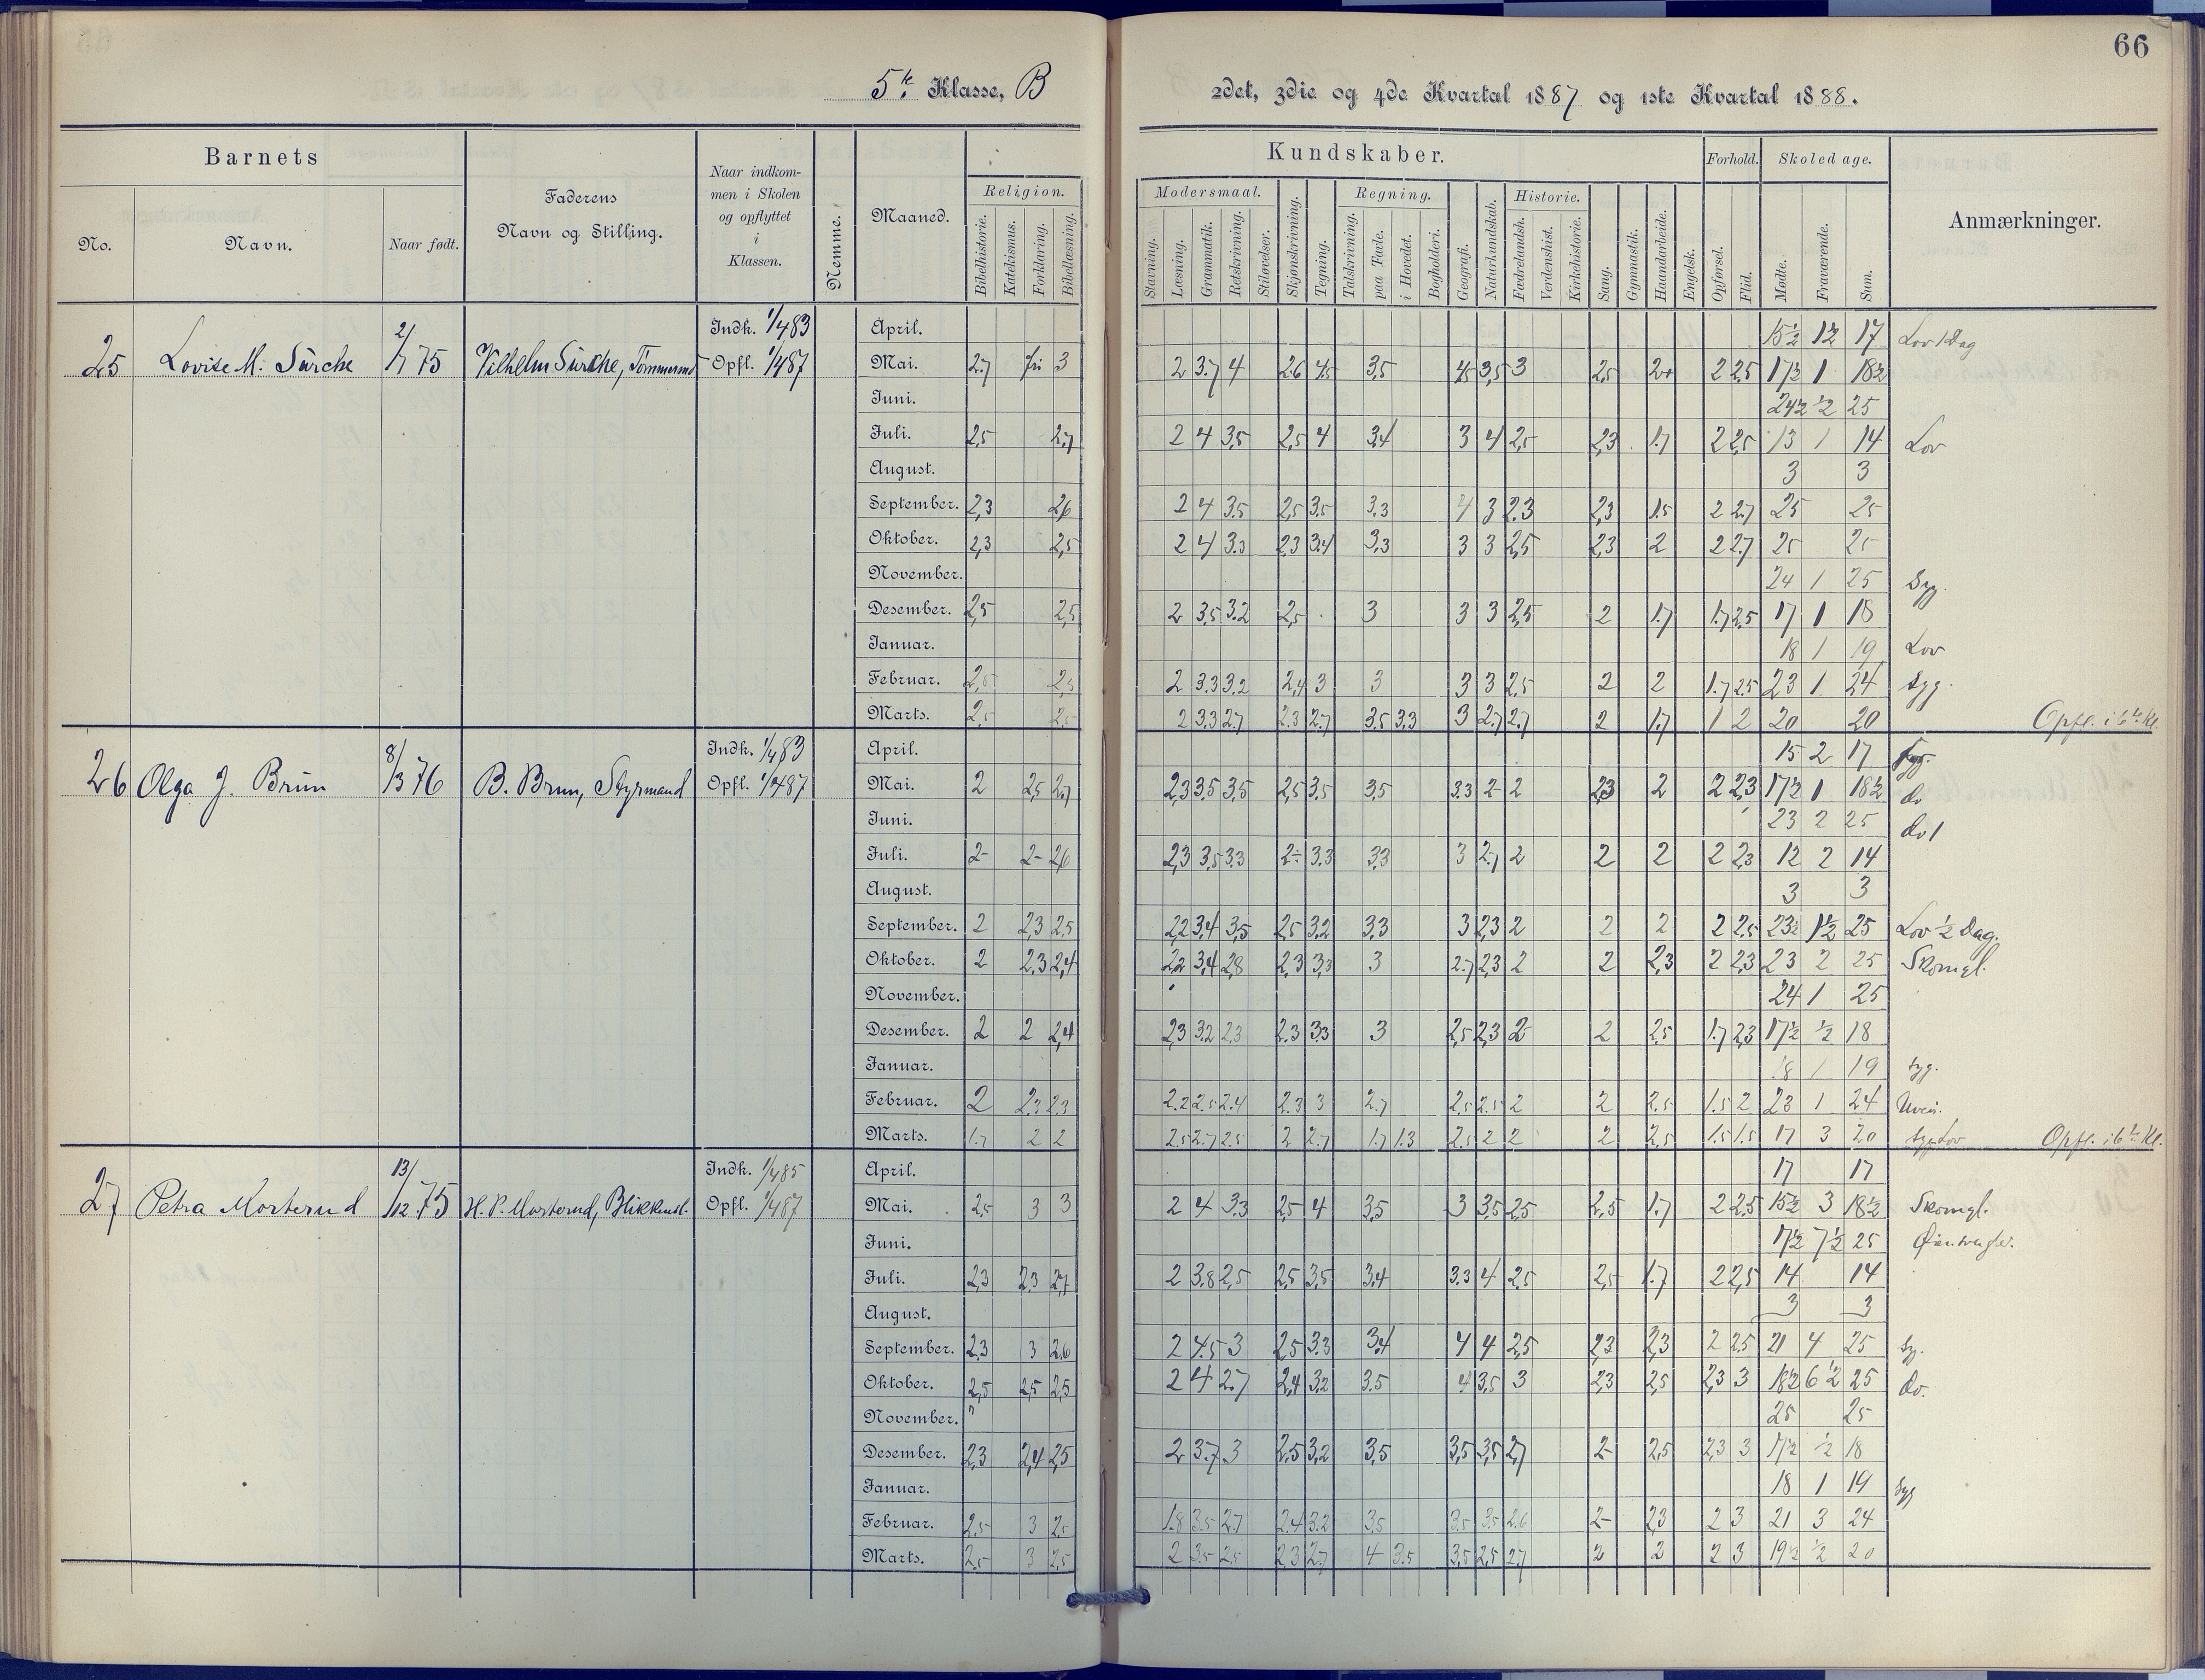 66
5te Klasse, B
2det, 3die og 4de Kvartal 1887 og 1ste Kvartal 1888.
Barnets
Faderens Navn og Stilling.
Naar indkommen i Skolen og opflyttet i Klassen.
Nemme.
Maaned.
Kundskaber.
Forhold.
Skoledage.
Anmærkninger.
No.
Navn.
Naar født.
Religion.
Bibelhistorie. Katekismus. Forklaring. Bibellæsning.
Modersmaal.
Stavning. Læsning. Grammatik. Retskrivning. Stiløvelser.
Skjønskrivning. Tegning.
Regning.
Talskrivning. paa Tavle. i Hovedet. Bogholderi.
Geografi. Naturkundskab.
Historie.
Fædrelandsh. Verdenshist. Kirkehistorie.
Sang. Gymnastik. Haandarbeide. Engelsk.
Opførsel. Flid.
Mødte. Fraværende. Sum.
25 Lovise M. 2/7 75 Indk. 1/4 83 Opfl. 1/4 87
April. 15½ 1½ 17 Lov 1 Dag
Mai. 2,7 fri 3 2 3.7 4 2.6 4.5 3,5 4,5 3,5 3 2,5 2+ 2 2,5 17½ 1 18½
Juni. 24½ ½ 25
Juli. 2,5 2,7 2 4 3,5 2,5 4 3,4 3 4 2,5 2,3 1.7 2 2,5 13 1 14 Lov
August. 3 3
September. 2,3 2,6 2 4 3.5 2,5 3.5 3.3 4 3 2.3 2,3 1.5 2 2.7 25 25
Oktober. 2,3 2,5 2 4 3.3 2.3 3.4 3,3 3 3 2,5 2,3 2 2 2.7 25 25
November. 24 1 25 Syg.
Desember. 2,5 2,5 2 3.5 3.2 2,5 3 3 3 2,5 2 1.7 1.7 2.5 17 1 18
Januar. 18 1 19 Lov
Februar. 2,5 2,5 2 3.3 3.2 2,4 3 3 3 3 2,5 2 2 1.7 2.5 23 1 24 Syg.
Marts. 2,5 2,5 2 3.3 2.7 2.3 2.7 3.5 3.3 3 2.7 2.7 2 1.7 1 2 20 20 Opfl. i 6te Kl.
26 Olga J. Brun 8/3 76 B. Brun, Styrmand Indk. 1/4 83 Opfl. 1/4 87
April. 15 2 17 Syg.
Mai. 2 2,5 2,7 2,3 3.5 3,5 2,5 3.5 3.5 3.3 2 2 2,3 2 2 2,3 17½ 1 18½ do
Juni. 23 2 25 do 1
Juli. 2- 2- 2,6 2,3 3,5 3.3 2÷ 3.3 3.3 3 2.7 2 2 2 2 2,3 12 2 14
August. 3 3
September. 2 2,3 2.5 2,2 3,4 3,5 2,5 3.2 3,3 3 2,3 2 2 2 2 2.5 23½ 1½ 25 Lov ½ Dag.
Oktober. 2 2,3 2,4 2,2 3,4 2,8 2,3 3,3 3 2.7 2,3 2 2 2,3 2 2,3 23 2 25 Skomgl.
November. 24 1 25
Desember. 2 2 2,4 2,3 3.2 2.3 2.3 3.3 3 2,5 2,3 2 2 2.5 1.7 2.3 17½ ½ 18
Januar. 18 1 19 Syg.
Februar. 2 2.3 2.3 2.2 2.5 2.4 2.3 3 2.7 2.5 2.5 2 2 2.5 1.5 2 23 1 24
Marts. 1.7 2 2 2.5 2.7 2.5 2 2.7 1.7 1.3 2.5 2 2 2 2,5 1.5 1.5 17 3 20 Syg Lov Opfl. i 6te Kl.
27 Petra Morterud 13/12 75 H. P. Morterud, Blikkensl. Indk. 1/4 85 Opfl. 1/4 87
April. 17 17
Mai. 2,5 3 3 2 4 3.3 2,5 4 3,5 3 3,5 2,5 2,5 1.7 2 2,5 15½ 3 18½ Skomgl.
Juni. 17½ 7½ 25
Juli. 2,3 2,3 2,7 2 3.8 2,5 2,5 3,5 3,4 3.3 4 2,5 2,5 1.7 2 2,5 14 14
August. 3 3
September. 2,3 3 2,6 2 4.5 3 2,5 3.3 3,4 4 4 2,5 2,3 2,3 2 2.5 21 4 25 Sy.
Oktober. 2,5 2,5 2,5 2 4 2.7 2,4 3.2 3.5 4 3,5 3 2,3 2,5 2,3 3 18½ 6½ 25 do.
November. 25 25
Desember. 2,3 2,4 2,5 2 3.7 3 2.5 3.2 3,5 3,5 3,5 2,7 2- 2,5 2,3 3 17½ ½ 18
Januar. 18 1 19 Syg
Februar. 2.5 3 2.5 1.8 3.5 2.7 2.4 3.2 3.5 3.5 3.5 2.6 2- 2,3 2 3 21 3 24
Marts. 2.5 3 2,5 2 3.5 2.5 2.3 2.7 4 3.5 3,5 2,5 2,7 2 2 2 3 19½ ½ 20